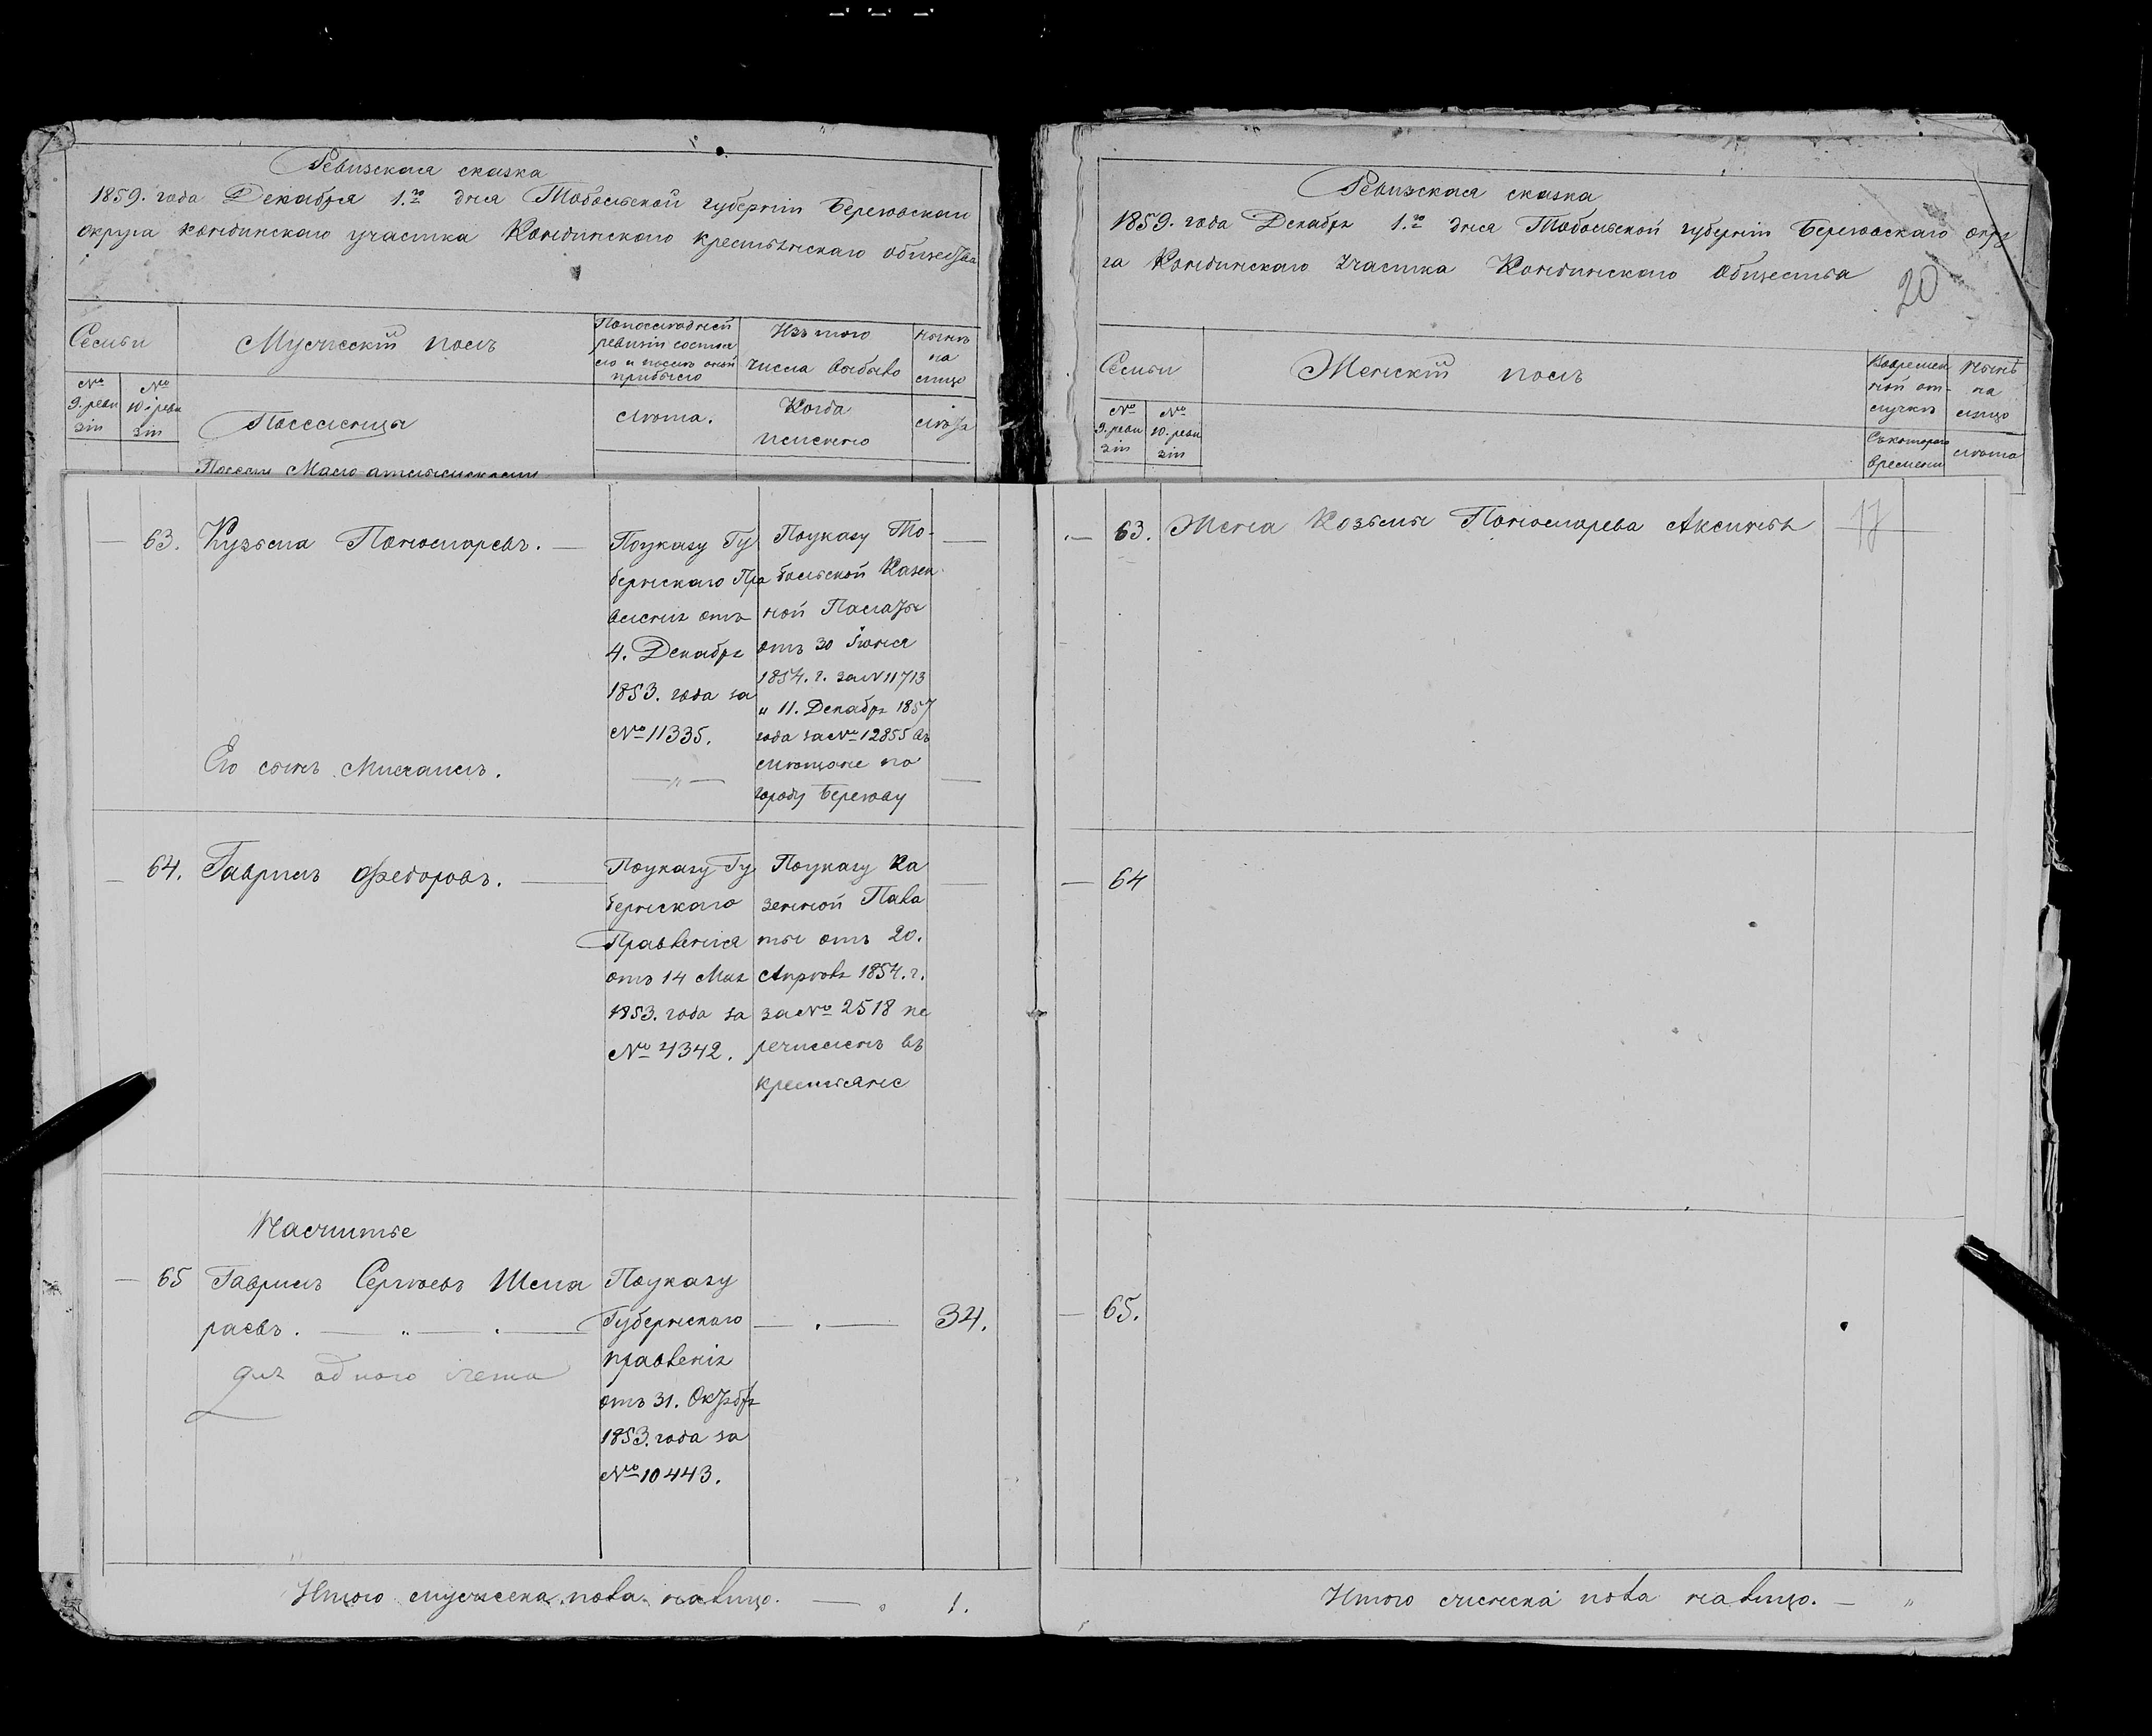 Ревизская сказка
1859. года Декабря 1.го дня Тобольской губернiи Березовскаго
округа кондинскаго участка Кондинскаго крестьянскаго общества
Семьи
Мужескiй полъ
По последней
ревизiи состоя
ло и после оной
прибыло
Изъ того
числа выбыло
Ныне
на
лицо
№
9. реви
зiи
№
10. реви
зiи
Поселенцы
лѣта.
Когда
именно
лѣта
63. Кузьма Пономаревъ.
Поуказу Гу
бернскаго Пра
вленiя отъ
4. Декабря
1853. года за
№ 11335.
Поуказу То-
больской Казен
ной Палаты
отъ 30 Iюня
1854. г. за N 11713
" 11. Декабря 1857
года за № 12855 въ
мѣщане по
городу Березову
Его сынъ Михаилъ.
— " —
64. Гаврилъ Федоровъ.
Поуказу Гу
бернскаго
Правленiя
отъ 14 Мая
1853. года за
№ 4342.
Поуказу Ка
зенной Пала
ты отъ 20.
Апрѣля 1854. г.
за № 2518 пе
речисленъ въ
крестьяне
65 Гаврилъ Сергѣевъ Шела
раевъ.
для одного счета
Поуказу
Губернскаго
правленiя
отъ 31. Октября
1853. года за
№ 10443.
34.
Итого мужеска пола налицо. 1.
Ревизская сказка
1859. года Декабря 1.го дня Тобольской губернiи Березовскаго окру
га Кондинскаго Участка Кондинскаго Общества
20
Семьи
Женскiй полъ
Вовремен
ной от-
лучкѣ
Нынѣ
на
лицо
№
9. реви
зiи
№
10. реви
зiи
Съкотораго
времени
лѣта
63. Жена Козьмы Пономарева Аксинья
64
65.
Итого женска пола налицо. — "